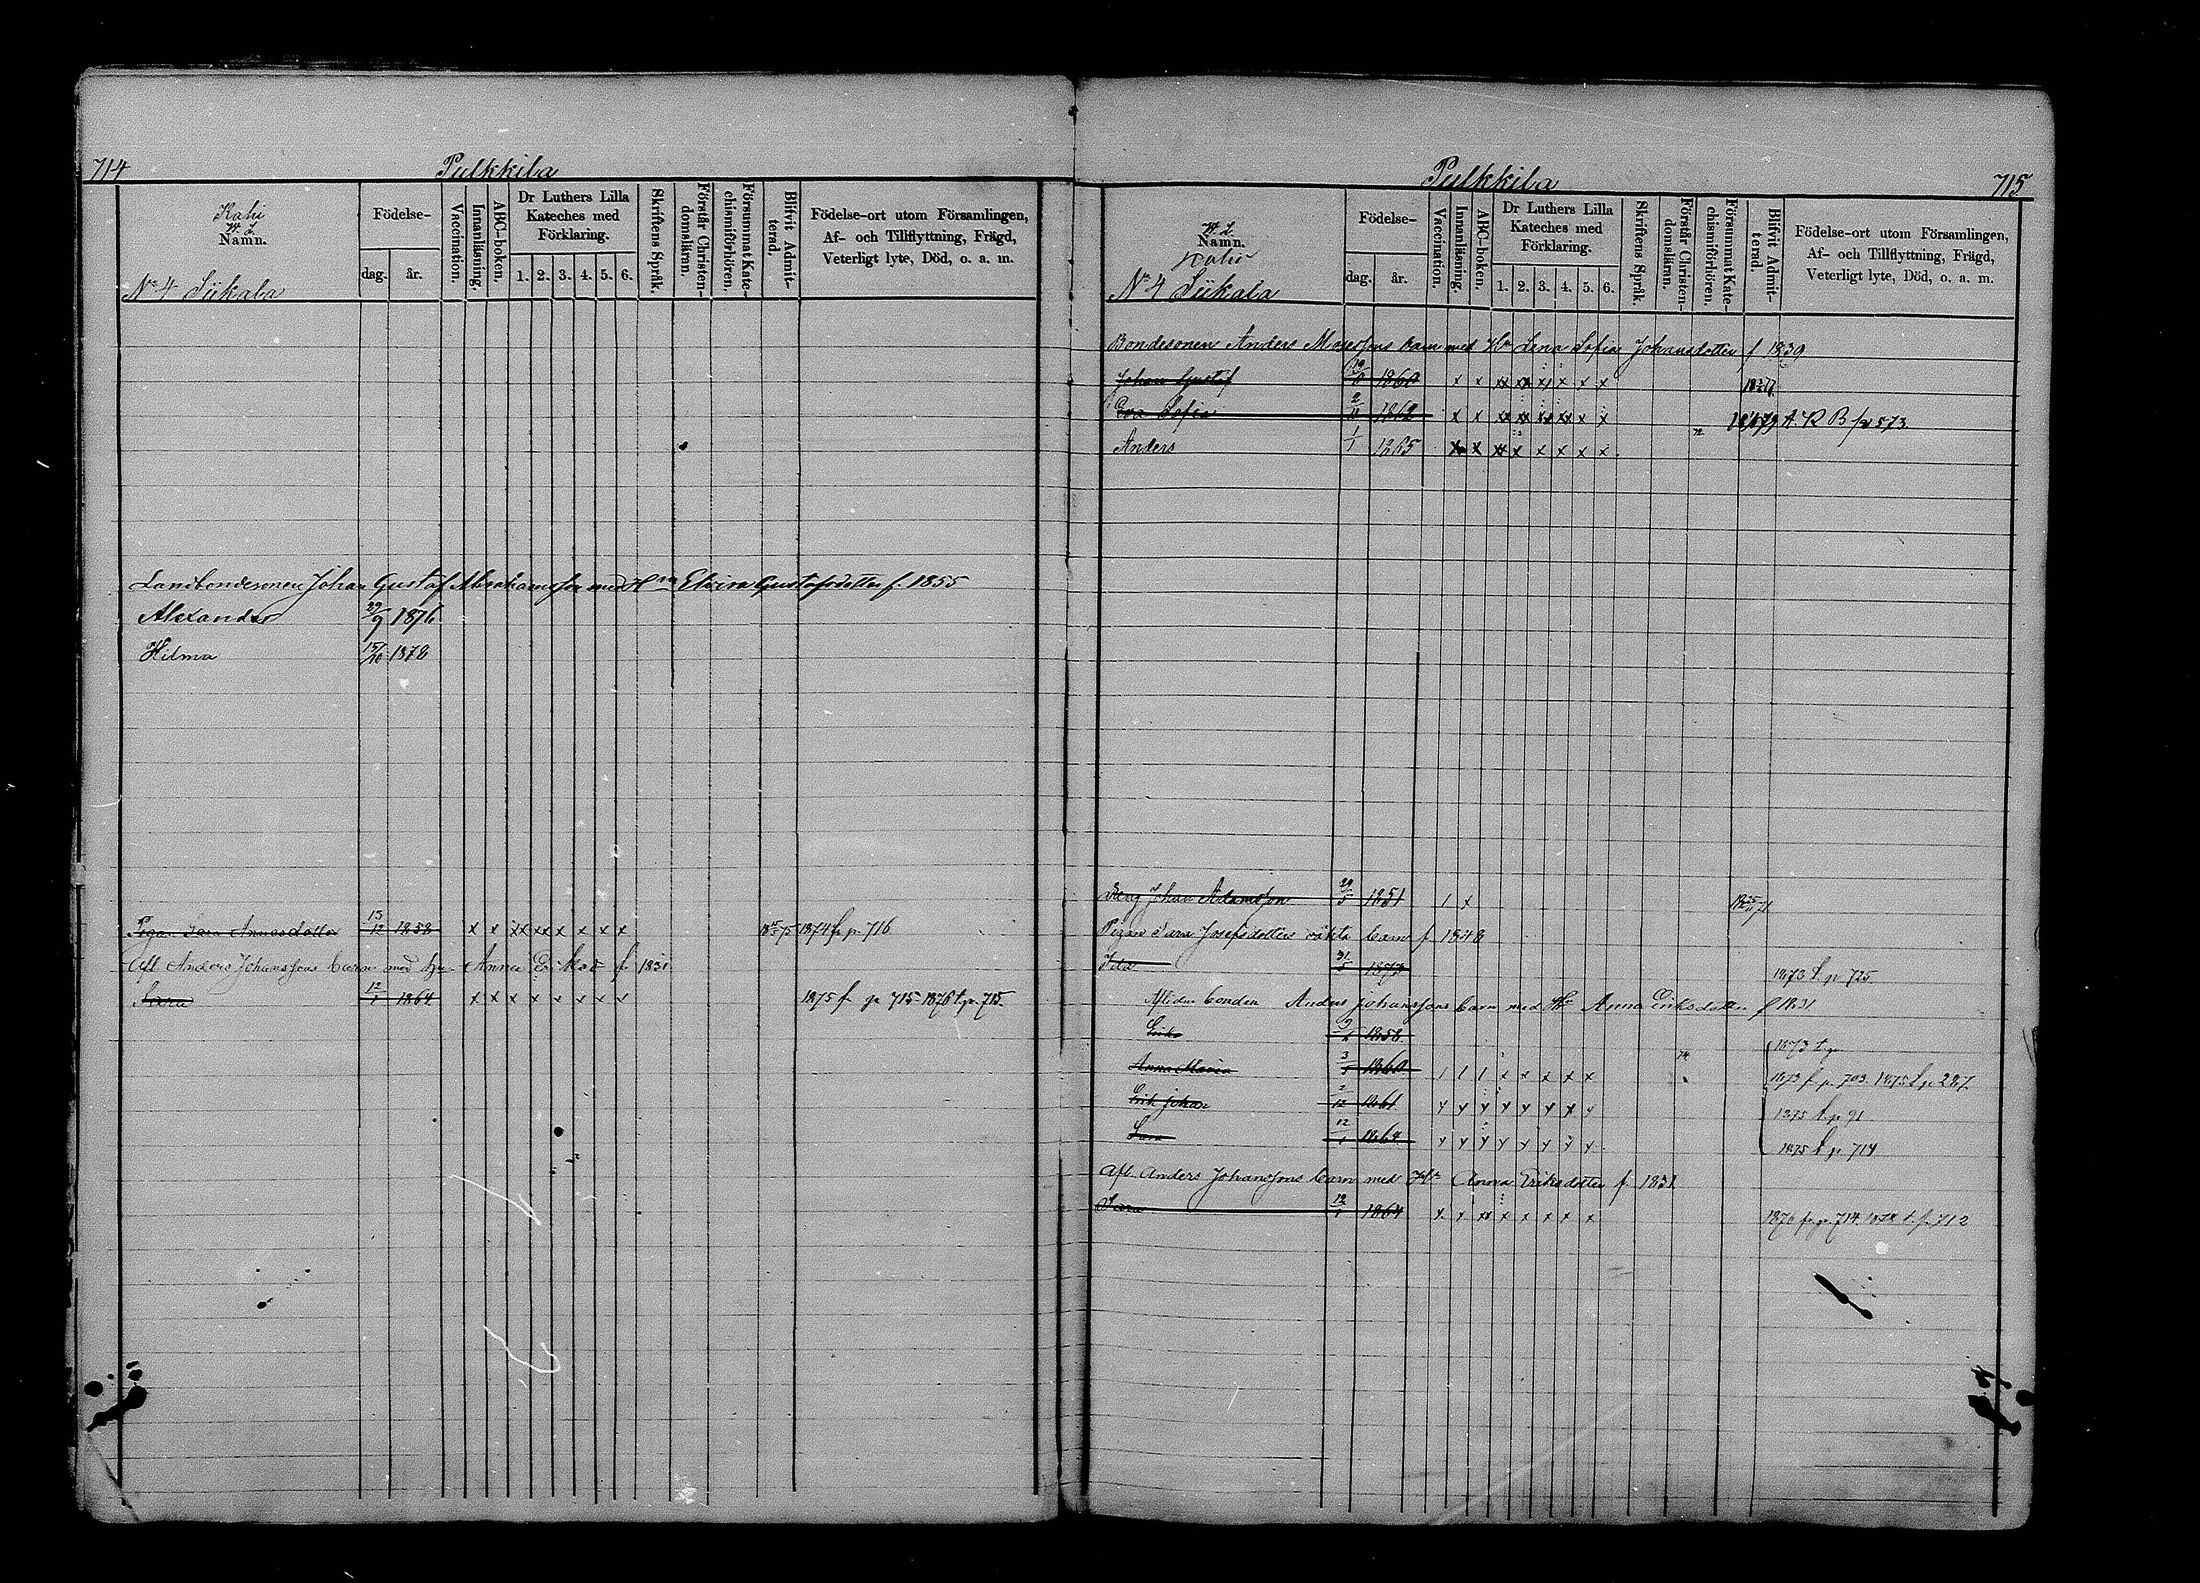 714 Pulkkila
Kahi
Namn.
No 4 Siikala
Födelse-
dag. år.
Vaccination.
Innanläsning.
ABC-boken.
Dr Luthers Lilla Kateches med Förklaring.
1. 2. 3. 4. 5. 6.
Skriftens Språk.
Förstår Christen-domsläran.
Försummat Kate-chismiförhören.
Blifvit Admit-terad.
Födelse-ort utom Församlingen,
Af- och Tillflyttning, Frägd,
Veterligt lyte, Död, o. a. m.
Landbondesonen Johan Gustaf Abrahamsson med Hn Elvira Gustafsdotter f. 1855
Alexander 29/9 1876
Hilma 15/10 1878
Pigan Sara Annasdotter 13/12 1858 x x xx xx x x x x 75 1874 fr p. 716
Afl. Anders Johanssons barn med hu Anna f. 1831
Sara 12/1 1864 x x x x x x x x 1875 f. p 715 1876 t. p. 715
Pulkkila 715
Namn.
Kahi
No 4 Siikala
Födelse-
dag. år.
Vaccination.
Innanläsning.
ABC-boken.
Dr Luthers Lilla Kateches med Förklaring.
1. 2. 3. 4. 5. 6.
Skriftens Språk.
Förstår Christen-domsläran.
Försummat Kate-chismiförhören.
Blifvit Admit-terad.
Födelse-ort utom Församlingen,
Af- och Tillflyttning, Frägd,
Veterligt lyte, Död, o. a. m.
Bondesonen Anders Mosessons barn med Hu Lena Sofia Johansdotter f 1839
Johan Gustaf 1860 x x xx xx x x x x
Eva Sofia 2/11 1862 x x xx xx xx xx x x A. K B p 573
Anders 1/1 1865 x x xx x x x x x
Johan Adamsson 29/5 1851
Pigan Sara Josefsdotters oäkta barn f 1848
Ida 31/5 1873 1873 t. p. 725
Aflidne bonden Anders Johanssons barn med Hu Anna Eriksdotter f 1831
1858 1873 t. p
Anna Maria 3/1 1860 1873 f. p. 703 1875 t. p. 287
Erik Johan 2/12 1861 1875 t. p. 91
Sara 12/1 1864 1875 t. p. 714
Afl. Anders Johanssons barn med Hu Anna Eriksdotter f. 1831
Sara 12/1 1864 1876 fr. p. 714 t. p. 712